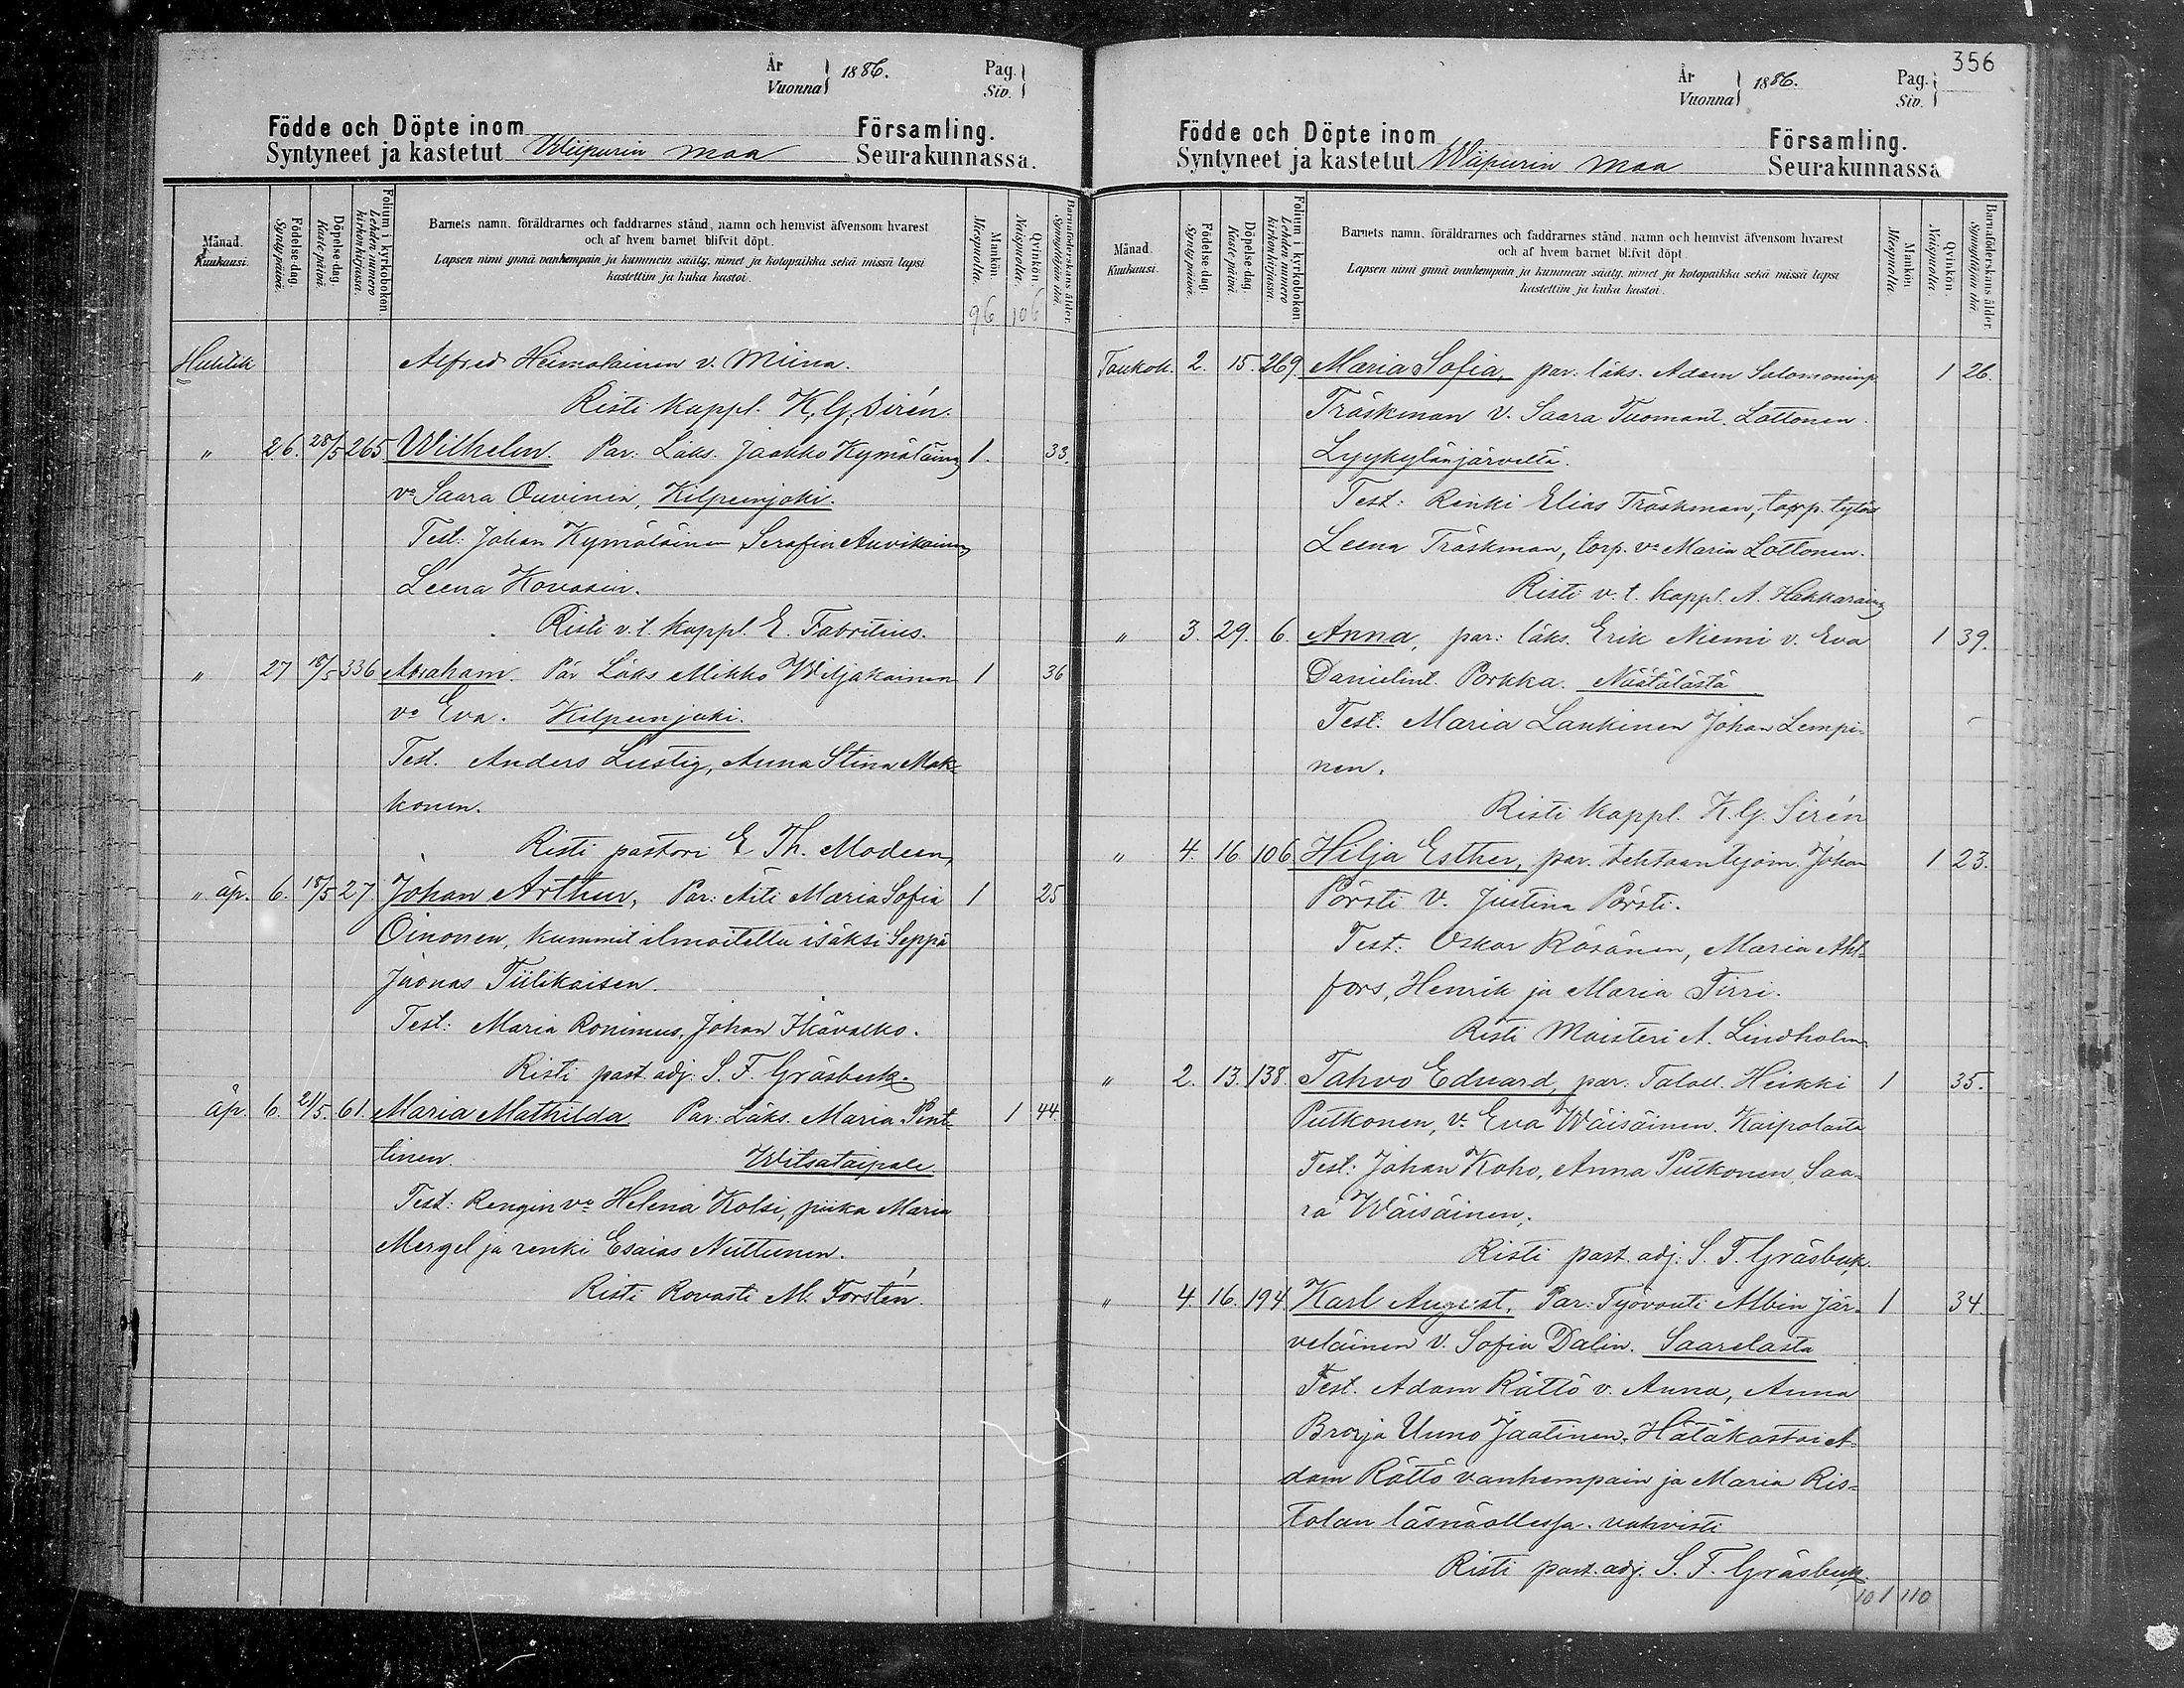 År
Vuonna
1886.
Pag.
Siv.
Födde och Döpte inom
Syntyneet ja kastetut
Wiipurin maa
Församling.
Seurakunnassa.
Månad.
Kuukausi.
Födelse-dag.
Syntymäpäivä.
Döpelse-dag.
Kastepäivä.
Folium i kyrkoboken.
Lehden numero
kirkonkirjassa.
Barnets namn, föräldrarnes och faddrarnes stånd, namn och hemvist äfvensom hvarest
och af hvem barnet blifvit döpt.
Lapsen nimi ynnä vanhempain ja kummein sääty, nimet ja kotopaikka sekä missä lapsi
kastettiin ja kuka kastoi.
Mankön.
Miespuolia.
Qvinkön.
Naispuolia.
Barnaföderskans ålder.
Synnyttäjän ikä.
96 106
Huhtik Alfred Heimolainen v. Miina.
Risti kappl. K. G. Sirén.
" 26. 28/5 265 Wilhelm. Par: Läks. Jaakko Kymäläinen 1. 33.
vo Saara Ouvinen, Kilpeenjoki.
Test: Johan Kymäläinen, Serafia Auvikainen,
Leena Kovasin.
Risti v.t. kappl. E. Fabritius.
" 27 18/5 336 Abraham. Par Läks Mikko Wiljakainen 1 36
vo Eva. Kilpeenjoki.
Test. Anders Lustig, Anna Stina Mak-
konen.
Risti pastori E. Th. Modeen,
" äp. 6. 18/5 27. Johan Arthur, Par: Äiti Maria Sofia 1 25
Oinonen, kummit ilmoitettu isäksi Seppä
Joonas Tiilikaisen.
Test: Maria Ronimus, Johan Ikävalko.
Risti past. adj. S. F. Gräsbeck.
äp. 6. 21/5. 61. Maria Mathilda Par: Läks. Maria Pent- 1 44.
tinen. Witsataipale.
Test: Rengin vo Helena Kolsi, piika Maria
Mergel ja renki Esaias Nuttunen.
Risti Rovasti M. Forstén.
356
År
Vuonna
1886.
Pag.
Siv.
Födde och Döpte inom
Syntyneet ja kastetut
Wiipurin maa
Församling.
Seurakunnassa
Månad.
Kuukausi.
Födelse-dag.
Syntymäpäivä.
Döpelse-dag.
Kastepäivä.
Folium i kyrkoboken.
Lehden numero
kirkonkirjassa.
Barnets namn, föräldrarnes och faddrarnes stånd, namn och hemvist äfvensom hvarest
och af hvem barnet blifvit döpt.
Lapsen nimi ynnä vanhempain ja kummein sääty, nimet ja kotopaikka sekä missä lapsi
kastettiin ja kuka kastoi.
Mankön.
Miespuolia.
Qvinkön.
Naispuolia.
Barnaföderskans ålder.
Synnyttäjän ikä.
Toukok. 2. 15. 269 Maria Sofia, par: läks. Adam Salomoninp 1 26.
Träskman v. Saara Tuomant. Lattonen.
Lyykylänjärveltä.
Test: Renki Elias Träskman, torp. tytär
Leena Träskman, torp. vo Maria Lattonen.
Risti v. t. kappl. A. Hakkarainen
" 3. 29. 6. Anna, par: läks. Erik Niemi v. Eva 1 39.
Danielint. Porkka. Näätälästä
Test: Maria Lankinen Johan Lempi-
nen.
Risti kappl. K. G. Sirén
" 4. 16. 106 Hilja Esther, par. tehtaantyöm. Johan 1 23.
Pörsti v. Justina Pörsti.
Test: Oskar Räsänen, Maria Ahl-
fors, Henrik ja Maria Tirri.
Risti Maisteri A. Lindholm
" 2. 13. 138. Tahvo Eduard, par: Taloll. Heikki 1 35.
Putkonen, vo Eva Wäisäinen. Kaipolasta
Test: Johan Koho, Anna Putkonen, Saa-
ra Wäisäinen.
Risti past. adj. S. F. Gräsbeck.
" 4. 16. 194 Karl August, Par: Työvouti Albin Jär- 1 34.
veläinen v. Sofia Dalin. Saarelasta
Test. Adam Rättö v. Anna, Anna
Uuno Jaatinen. Hätäkastoi A-
dam Rättö vanhempain ja Maria Ris-
tolan läsnäollessa. vahvisti
Risti past. adj. S. F. Gräsbeck.
101 110